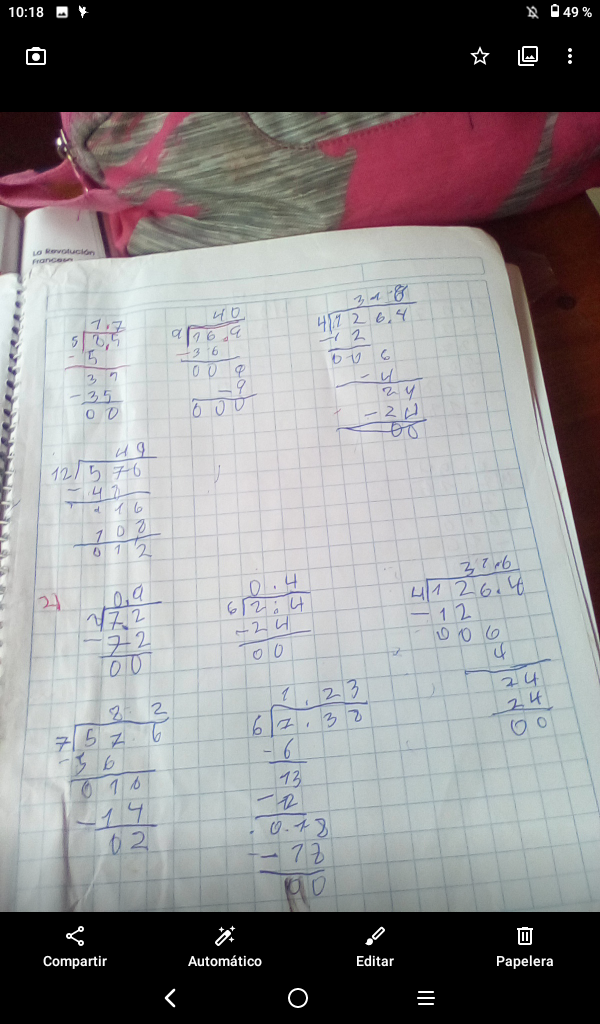 10:18
49 %
La Revolución
Francesa
1.7
5 8.5
- 5
3 5
- 35
0 0
4 0
9 36.9
- 36
0 0 9
- 9
0 0 0
3 1.6
4 1 2 6.4
- 1 2
0 0 6
- 4
2 4
- 2 4
0 0
4 9
12 5 7 6
- 4 8
1 1 6
1 0 8
0 1 2
2)
0.9
7.2
- 7 2
0 0
0.4
6 2.4
- 2 4
0 0
3 1.6
4 1 2 6.4
- 1 2
0 0 6
4
2 4
2 4
0 0
8 2
7 5 7.6
- 5 6
0 1 6
- 1 4
0 2
1.23
6 7.38
- 6
13
- 12
0.18
- 18
0 0
Compartir
Automático
Editar
Papelera